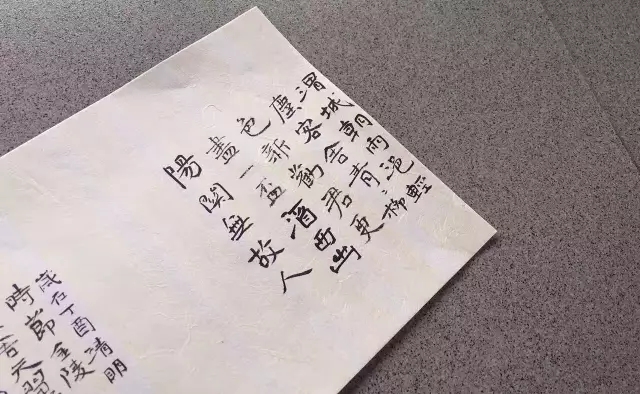 渭城朝雨浥輕
塵客舍青〻柳
色新勸君更
盡一盃酒西出
陽關無故人
歲在丁酉清明
時節金陵